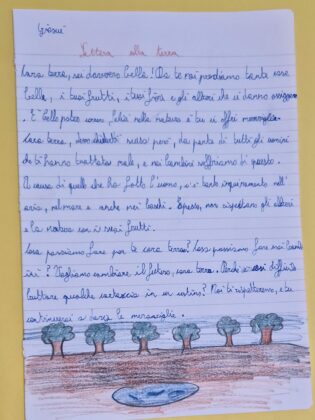 Giosuè
Lettera alla terra
Cara terra, sei davvero bella! Da te noi prendiamo tante cose
belle, i tuoi frutti, i tuoi fiori e gli alberi che ci danno ossigeno
. E' bello poter correre, liberi nella natura e tu ci offri meraviglie.
Cara terra, devo chiederti scusa però, da parte di tutti gli uomini
che ti hanno trattata male, e noi bambini soffriamo di questo.
A causa di quello che ha fatto l'uomo, c'è tanto inquinamento nell'
aria, nel mare e anche nei boschi. Spesso, non rispettano gli alberi
e la natura con i suoi frutti.
Cosa possiamo fare per te cara terra? Cosa possiamo fare noi bamb
ini? Vogliamo cambiare il futuro, cara terra. Perché è così difficile
buttare qualche cartaccia in un cestino? Noi ti rispetteremo, e tu
continuerai a darci le meraviglie.